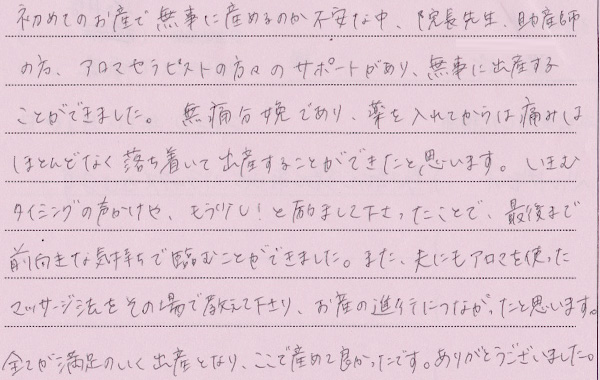 初めてのお産で無事に産めるのか不安な中、院長先生、助産師
の方、アロマセラピストの方々のサポートがあり、無事に出産する
ことができました。 無痛分娩であり、薬を入れてからは痛みは
ほとんどなく落ち着いて出産することができたと思います。いきむ
タイミングの声かけや、もう少し！と励まして下さったことで、最後まで
前向きな気持ちで臨むことができました。また、夫にもアロマを使った
マッサージ法をその場で教えて下さり、お産の進行につながったと思います。
全てが満足のいく出産となり、ここで産めて良かったです。ありがとうございました。